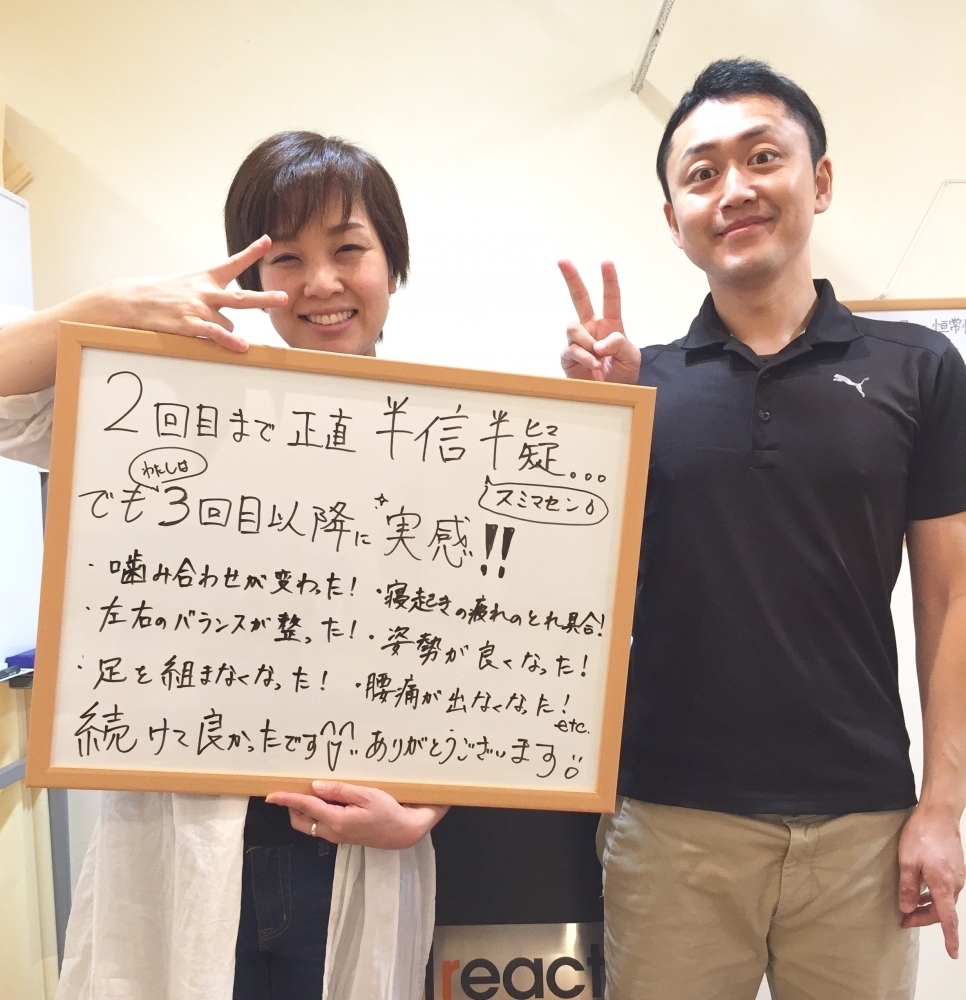 2回目まで正直 半信半疑...
スミマセン
わたしは
でも3回目以降に実感!!
・噛み合わせが変わった!
・寝起きの疲れのとれ具合!
・左右のバランスが整った!
・姿勢が良くなった!
・足を組まなくなった!
・腰痛が出なくなった!
etc.
続けて良かったです
ありがとうございます
react
恒常